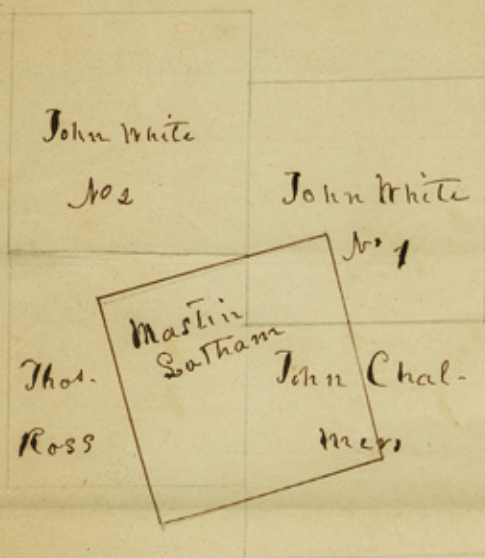 John White
No 2
John White
No 1
Mastin
Latham
Thos.
Ross
John Chal-
mers